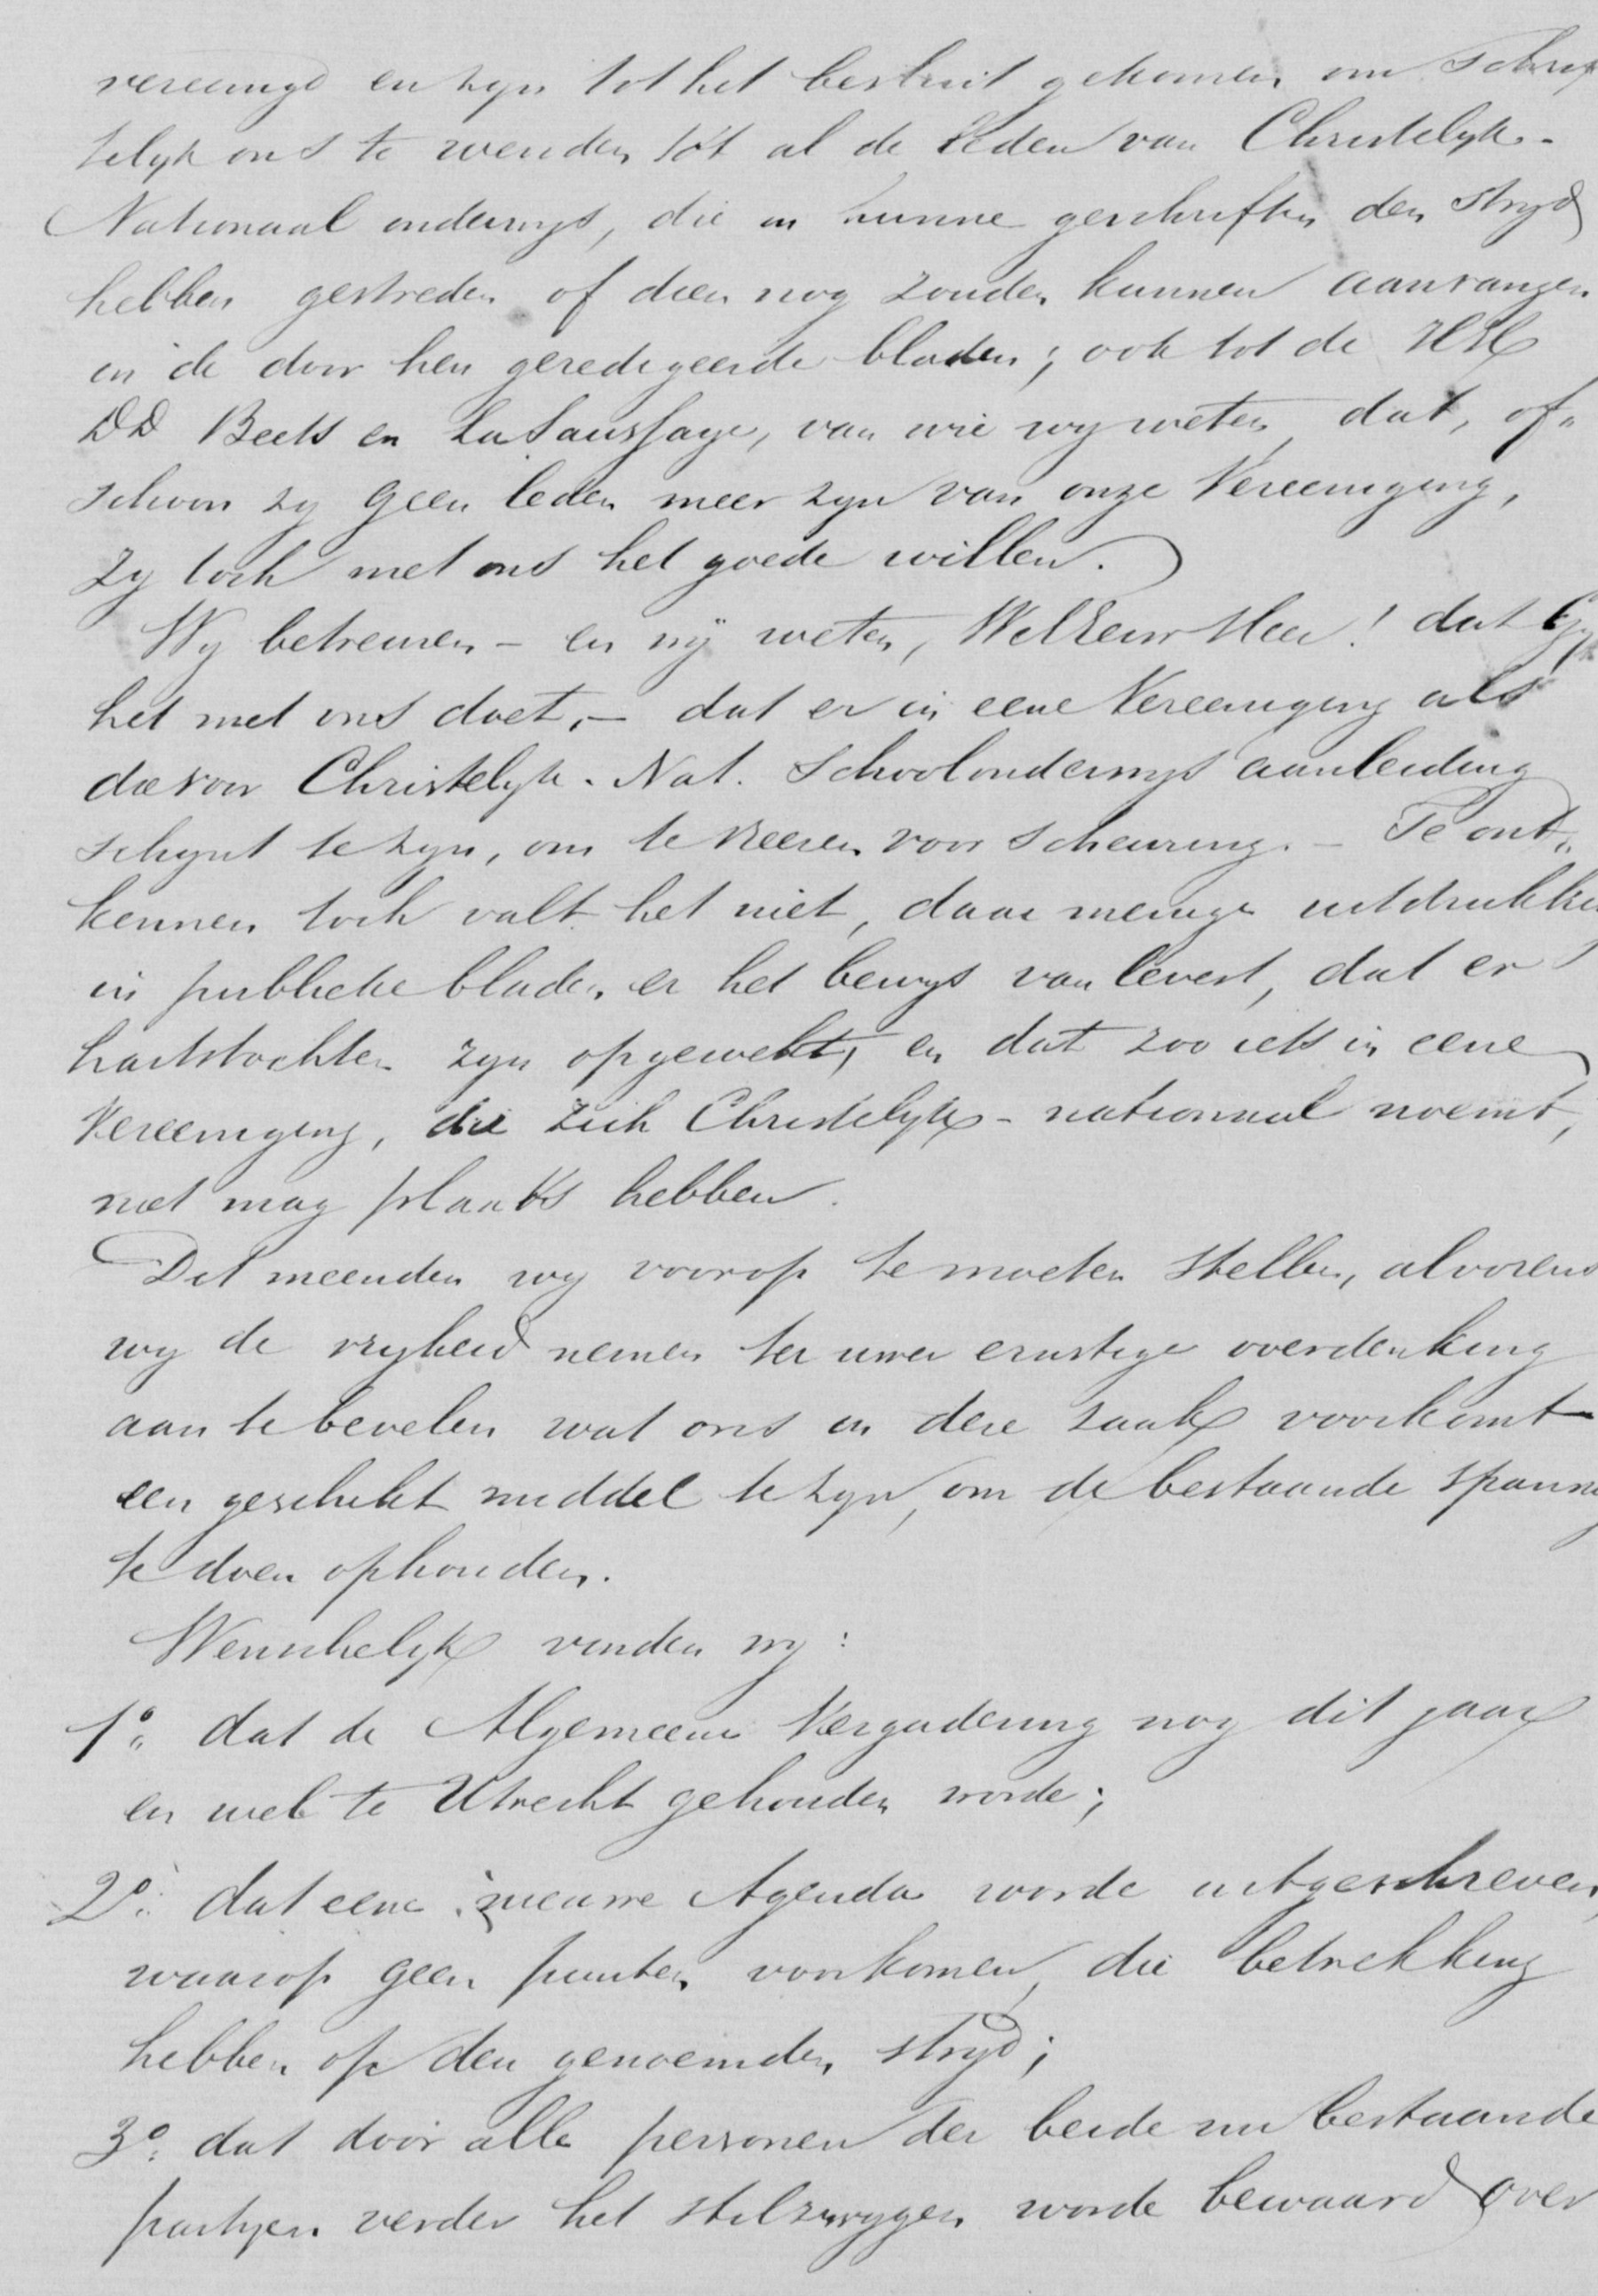 vereenigd en zyn tot het besluit gekomen om Schrif
telyk ons te wenden tot al de leden van Christelyk-
Nationaal onderwys, die in hunne geschriften den Stryd
hebben gestreden of dien nog zouden kunnen aanvangen
in de door hen geredigeerde bladen; ook tot de HH
DD Beets en LaSaussaye, van wie wy weten dat, of„
schoon zy geen leden meer zyn van onze Vereeniging,
zy toch met ons het goede willen.
Wy betreuren - en wij weten, WelEerw Heer! dat Gy
het met ons doet, - dat er in eene Vereeniging als
die voor Christelyk. Nat. Schoolonderwys aanleiding
schynt te zyn, om te vreezen voor scheuring. - Te ont„
kennen toch valt het niet, daar menige uitdrukking
in publieke bladen er het bewys van levert, dat er
hartstochten zyn opgewekt, en dat zoo iets in eene
Vereeniging, die zich Christelyk - nationaal noemt,
niet mag plaats hebben.
Dit meenden wy voorop te moeten stellen, alvorens
wy de vryheid nemen ter uwer ernstige overdenking
aan te bevelen wat ons in deze zaak voorkomt
een geschikt middel te zyn, om de bestaande spanning
te doen ophouden.
Wenschelyk vinden wy:
1o. dat de Algemeene Vergadering nog dit jaar
en wel te Utrecht gehouden worde;
2o. dat eene nieuwe Agenda worde uitgeschreven,
waarop geen punten voorkomen, die betrekking
hebben op den genoemden stryd;
3o. dat door alle personen der beide nu bestaande
partyen verder het stilzwygen worde bewaard over